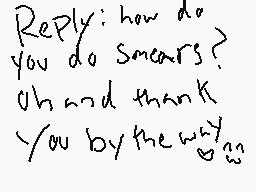 Reply: how do
you do smears?
Oh and thank
you by the way ♡ ^^